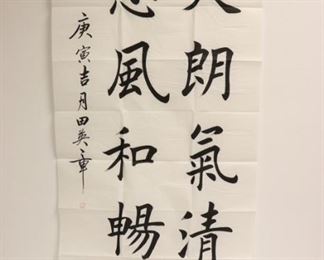 朗氣清
風和暢
庚寅吉月田英章